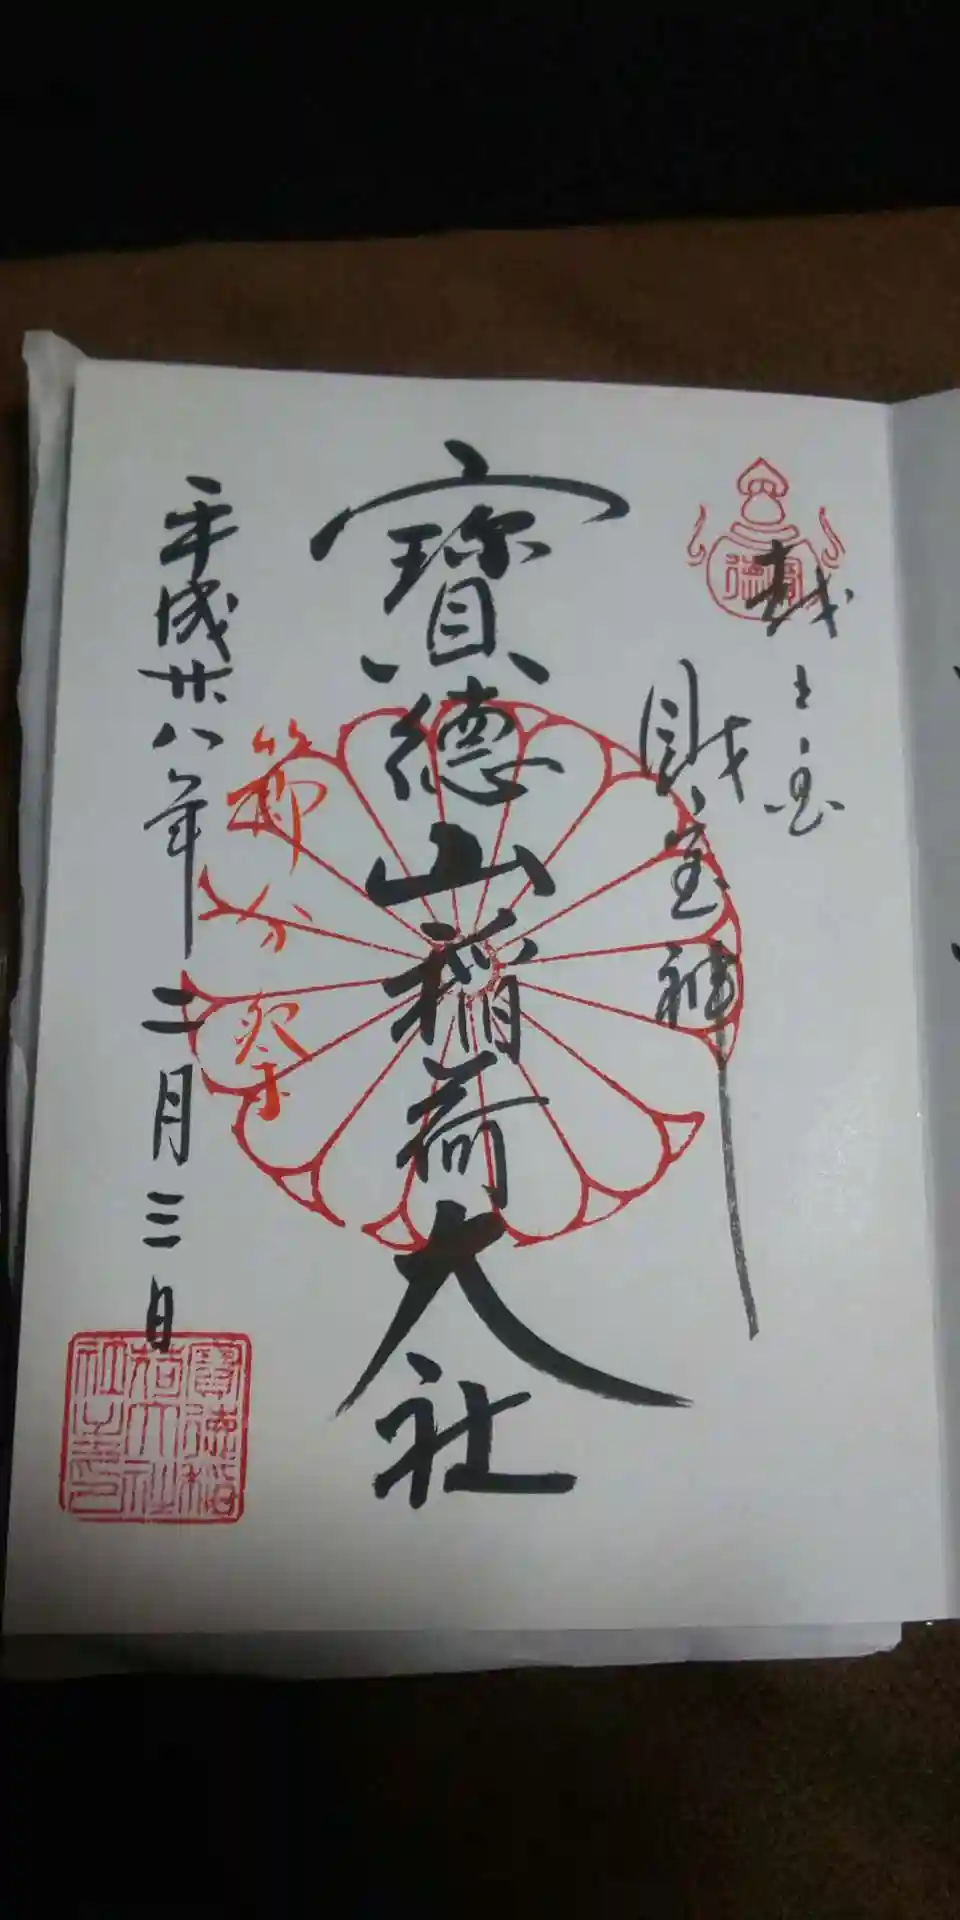 越乃国
財宝神
寶德山稲荷大社
節分祭
平成廿八年二月三日
寶徳稲荷大社之印